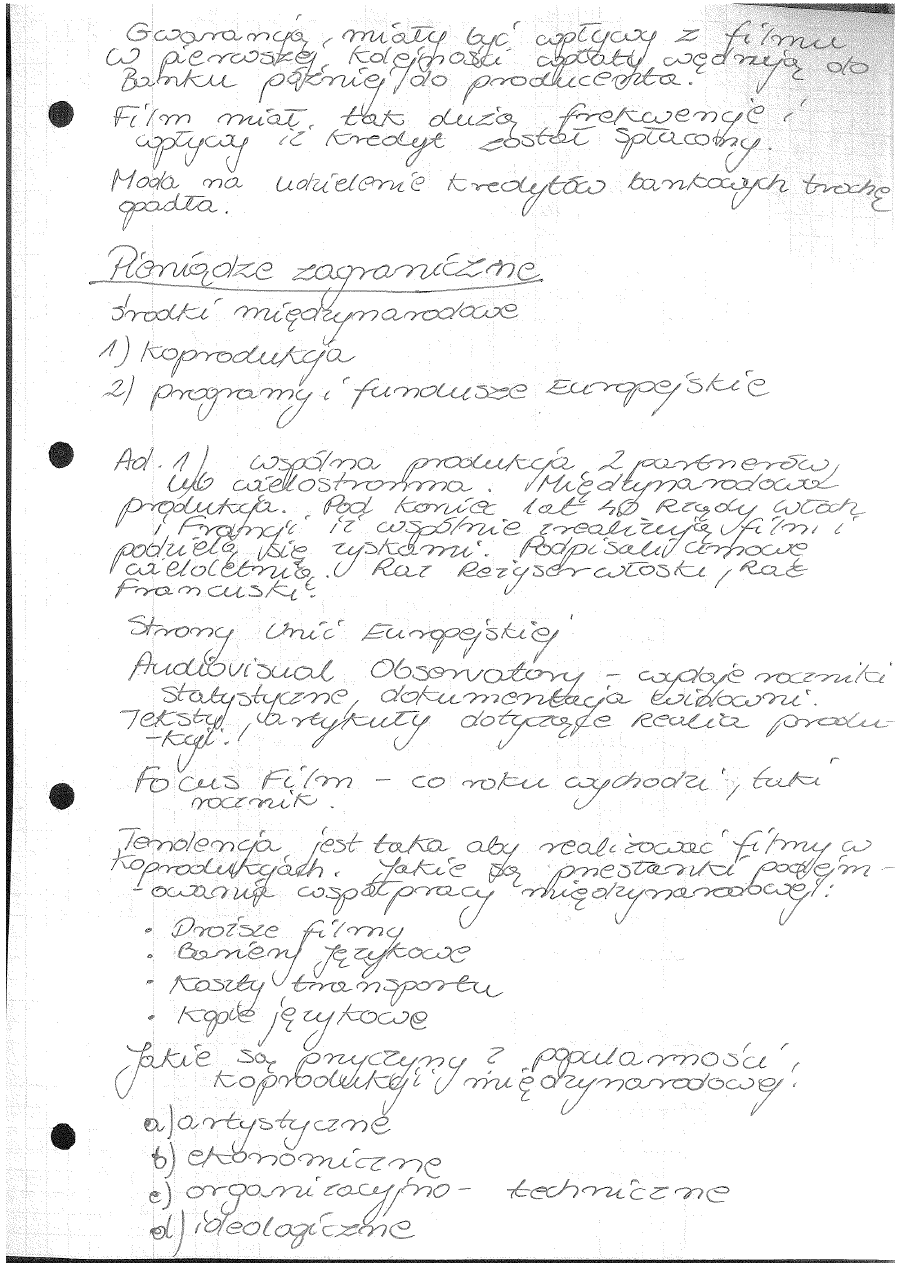 Gwarancją, miały być wpływy z filmu
w pierwszej kolejności wpłaty wędrują do
Banku później do producenta.
Film miał tak dużą frekwencje i
wpływy iż kredyt został spłacony.
Moda na udzielenie kredytów bankowych trochę
opadła.
Pieniądze zagraniczne
środki międzynarodowe
1) koprodukcja
2) programy i fundusze Europejskie
Ad. 1) wspólna produkcja 2 partnerów,
lub wielostronna. Międzynarodowa
produkcja. Pod koniec lat 40 Rządy włoch
i Francji iż wspólnie zrealizują film i
podzielą się zyskami. Podpisali umowę
wieloletnią. Raz Reżyser włoski, Raz
Francuski.
Strony Unii Europejskiej
Audiovisual Observatory - wydaje roczniki
statystyczne, dokumentacja widowni.
Teksty, artykuły dotyczące Realia produ-
-kcji.
Focus Film - co roku wychodzi, taki
rocznik.
Tendencja jest taka aby realizować filmy w
koprodukcjach. Jakie są przesłanki podejm-
-owania współpracy międzynarodowej:
• Droższe filmy
• Bariery językowe
• Koszty transportu
• Kopie językowe
Jakie są przyczyny z popularności
koprodukcji międzynarodowej:
a) artystyczne
b) ekonomiczne
c) organizacyjno - techniczne
d) ideologiczne